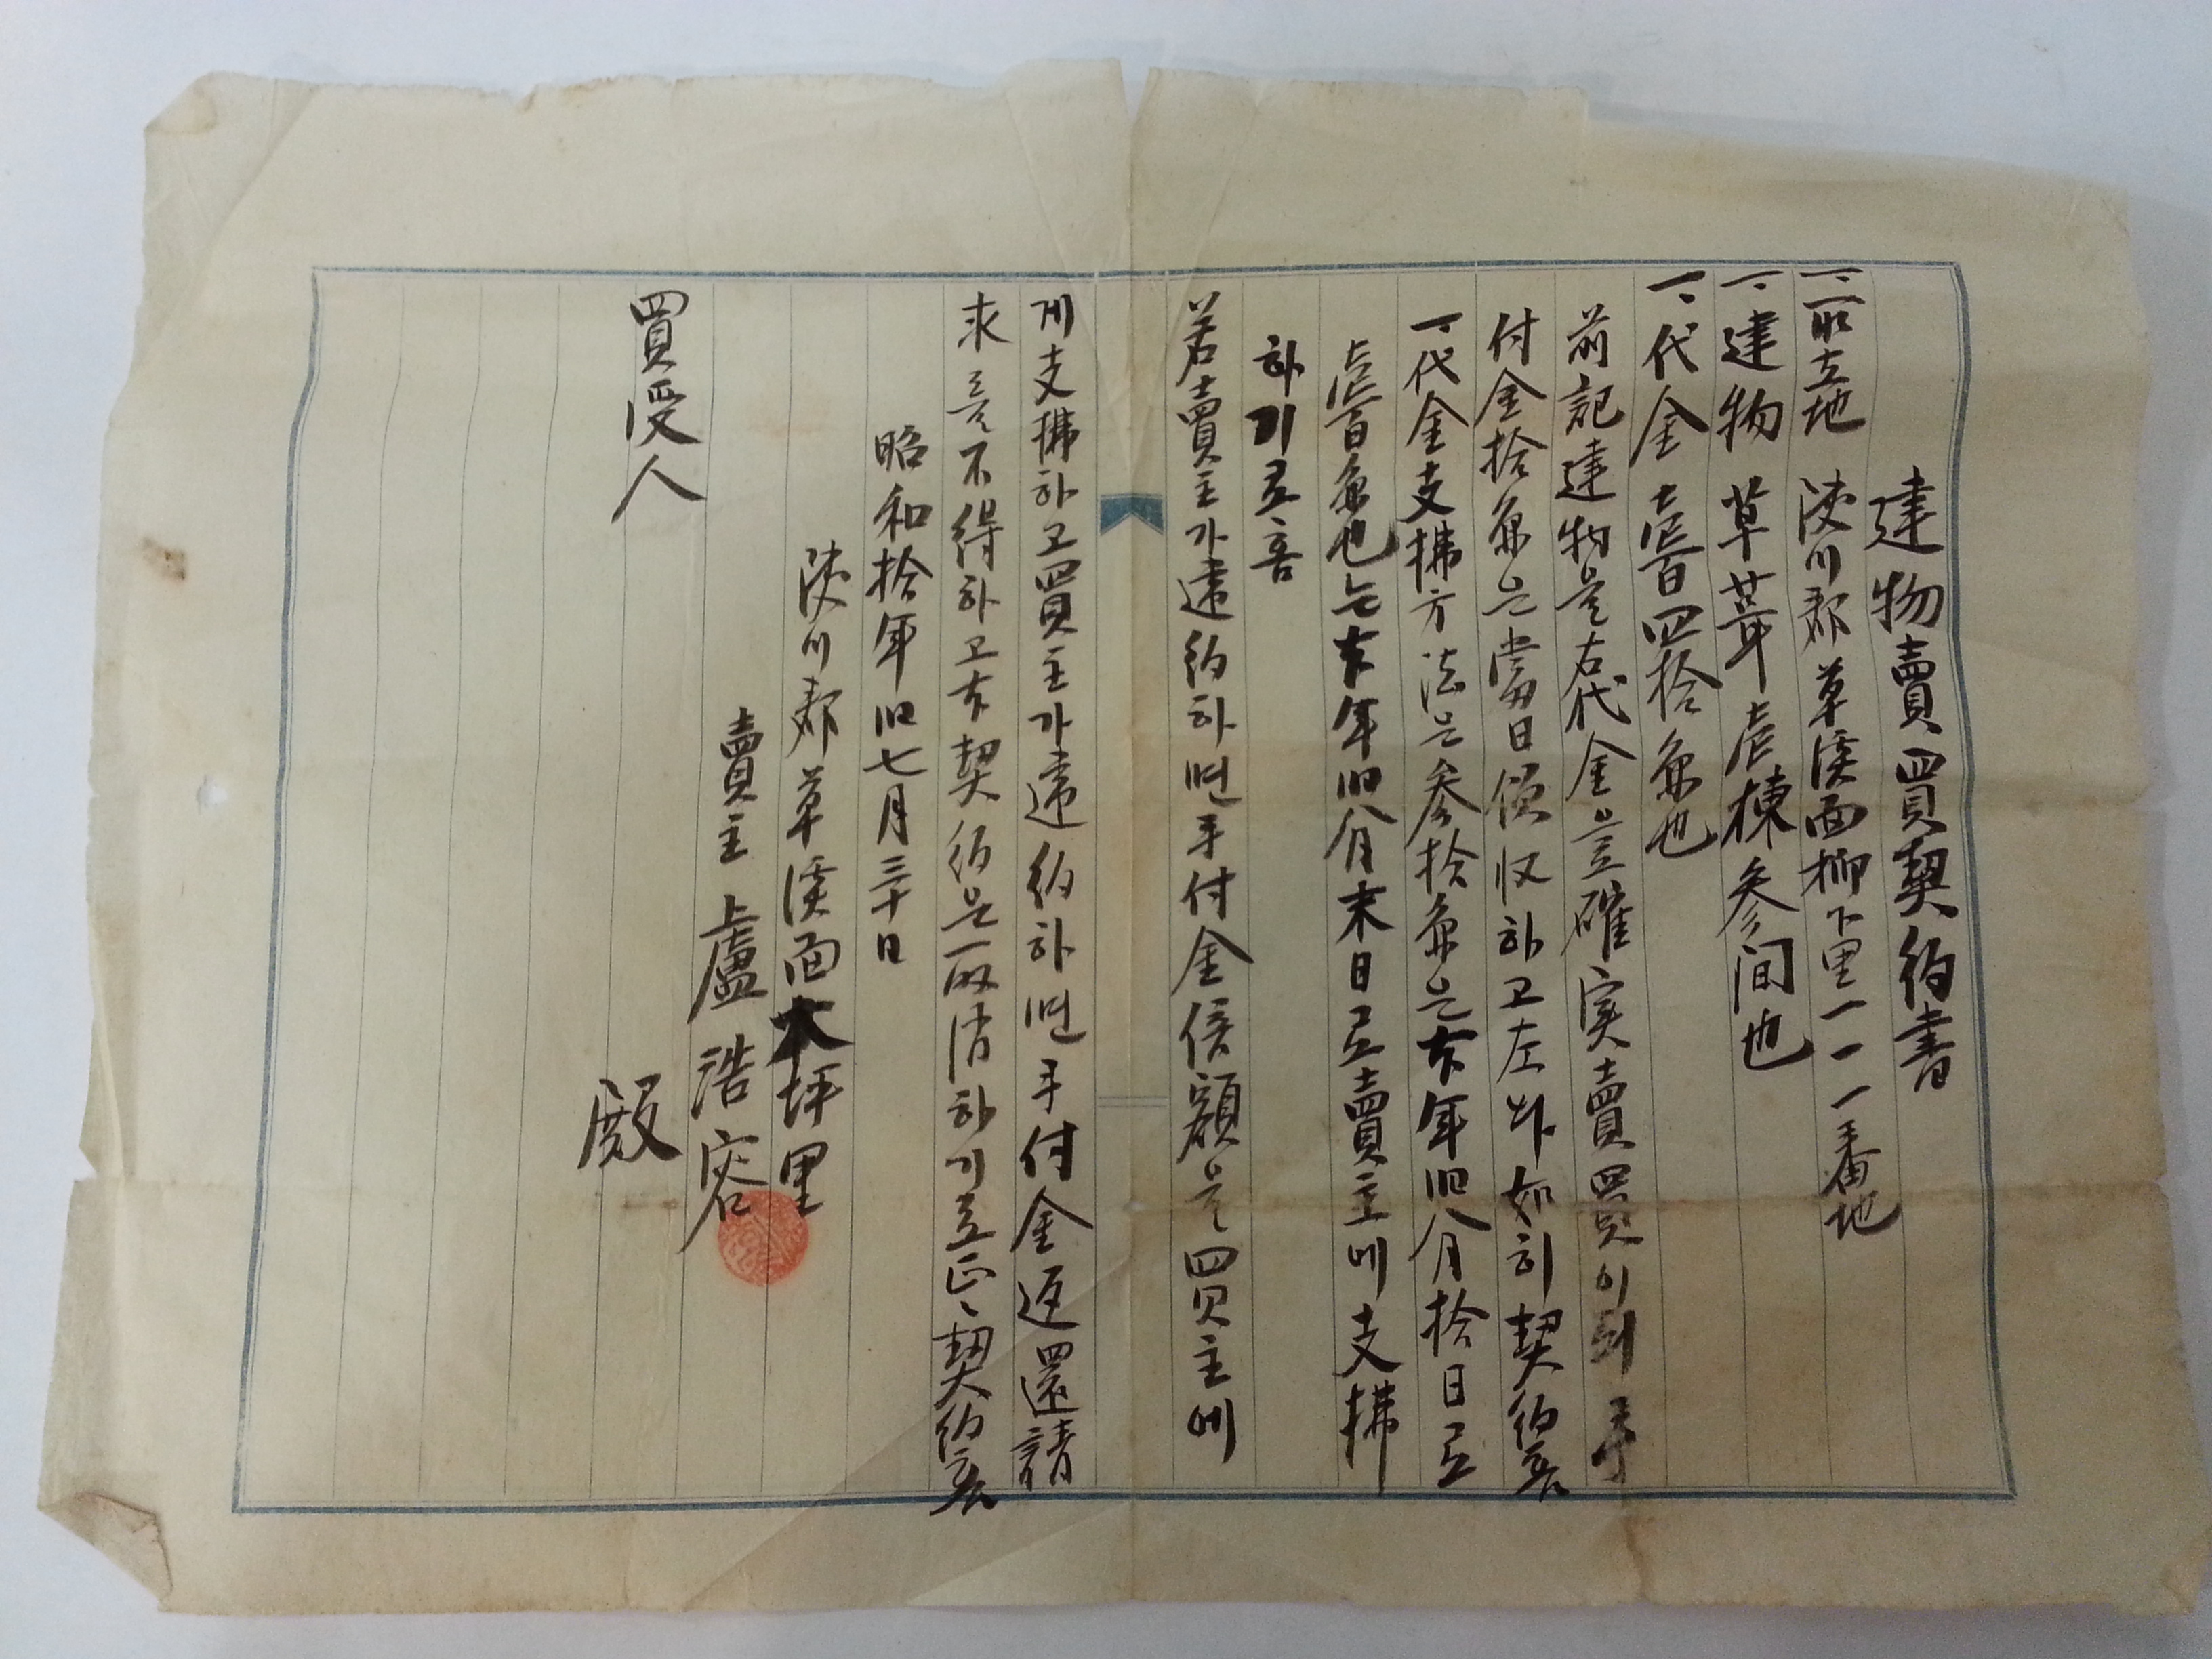 建物賣買契約書
一、所在地 陜川郡草溪面柳下里一一一番地
一、建物 草葺壱棟参间也
一、代金 壱百四拾圓也
前記建物을右代金으로確実賣買이되 手
付金拾圓은當日領収하고左와如히契約홈
一、代金支拂方法은参拾圓은本年旧八月拾日로
壱百圓也는本年旧八月末日로賣主에支拂
하기로홈
若賣主가違約하면手付金倍額을買主에
게支拂하고買主가違約하면手付金返還請
求을不得하고本契約은取消하기로正、契約홈
昭和拾年旧七月三十日
陜川郡草溪面本坪里
賣主 盧浩容
買受人
殿